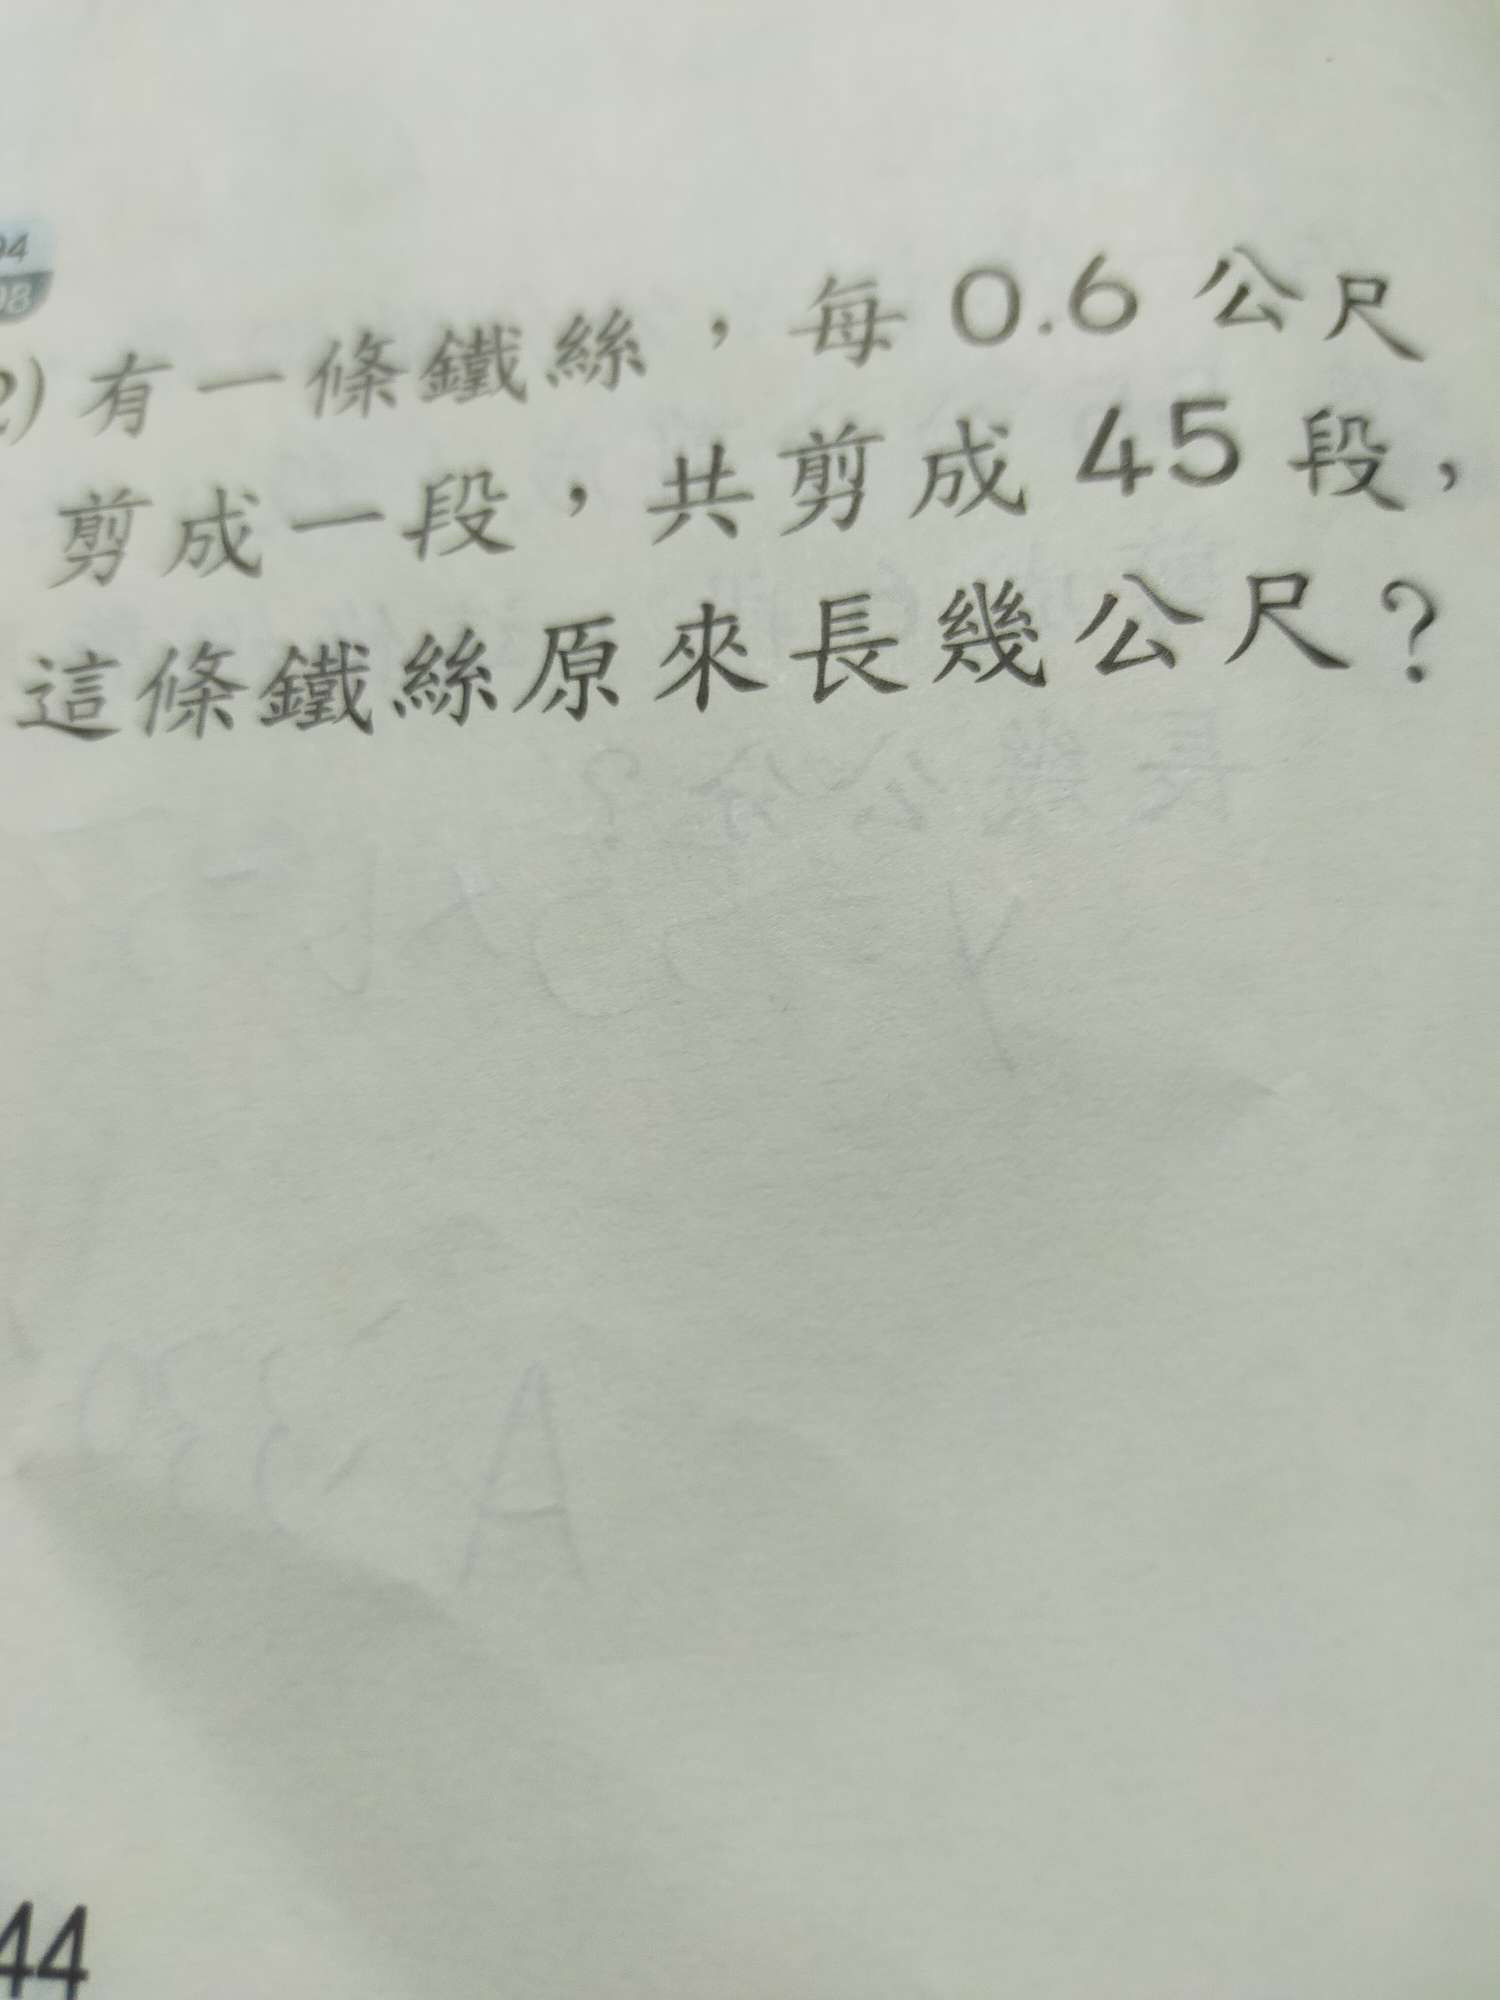 2) 有一條鐵絲，每 0.6 公尺
剪成一段，共剪成 45 段，
這條鐵絲原來長幾公尺？
44